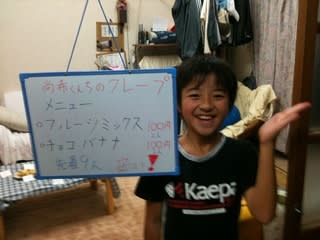 くんちのクレープ
メニュー
○フルーツミックス 100円
○チョコバナナ 100円
先着9人
Kaepa